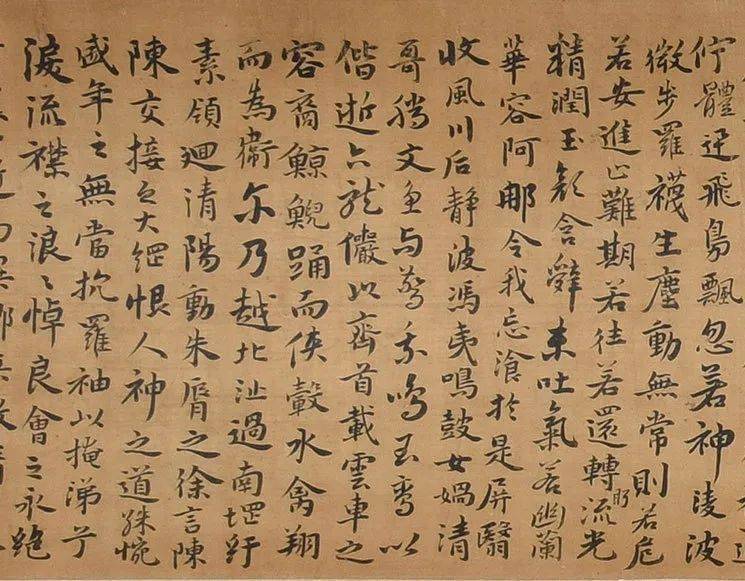 佇體迅飛鳧飄忽若神陵波
微步羅襪生塵動無常則若危
若安進止難期若往若還轉眄流光
精潤玉顏含辭未吐氣若幽蘭
華容阿那令我忘湌於是屏翳
收風川后靜波馮夷鳴鼓女媧清
哥騰文魚与警乘鳴玉鸞以
偕逝六龍儼以齊首載雲車之
容裔鯨鯢踊而俠轂水禽翔
而為衛尓乃越北沚過南堽紆
素領迴清陽動朱脣之徐言陳
陳交接之大綱恨人神之道殊惋
盛年之無當抗羅袖以掩涕兮
淚流襟之浪〻悼良會之永絕